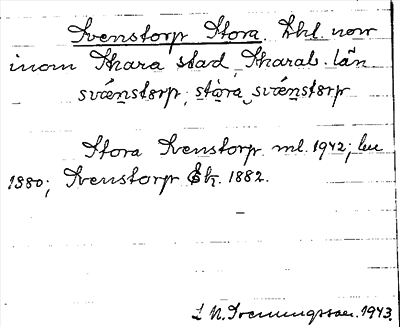 Svenstorp Stora. Lhl. now
inom Skara stad, Skarab. län
svæ̀nstɵrp, stòra svæ̀nstɵrp
Stora Svenstorp ml. 1942; lu
1880; Svenstorp Gk. 1882.
L N. 1943.